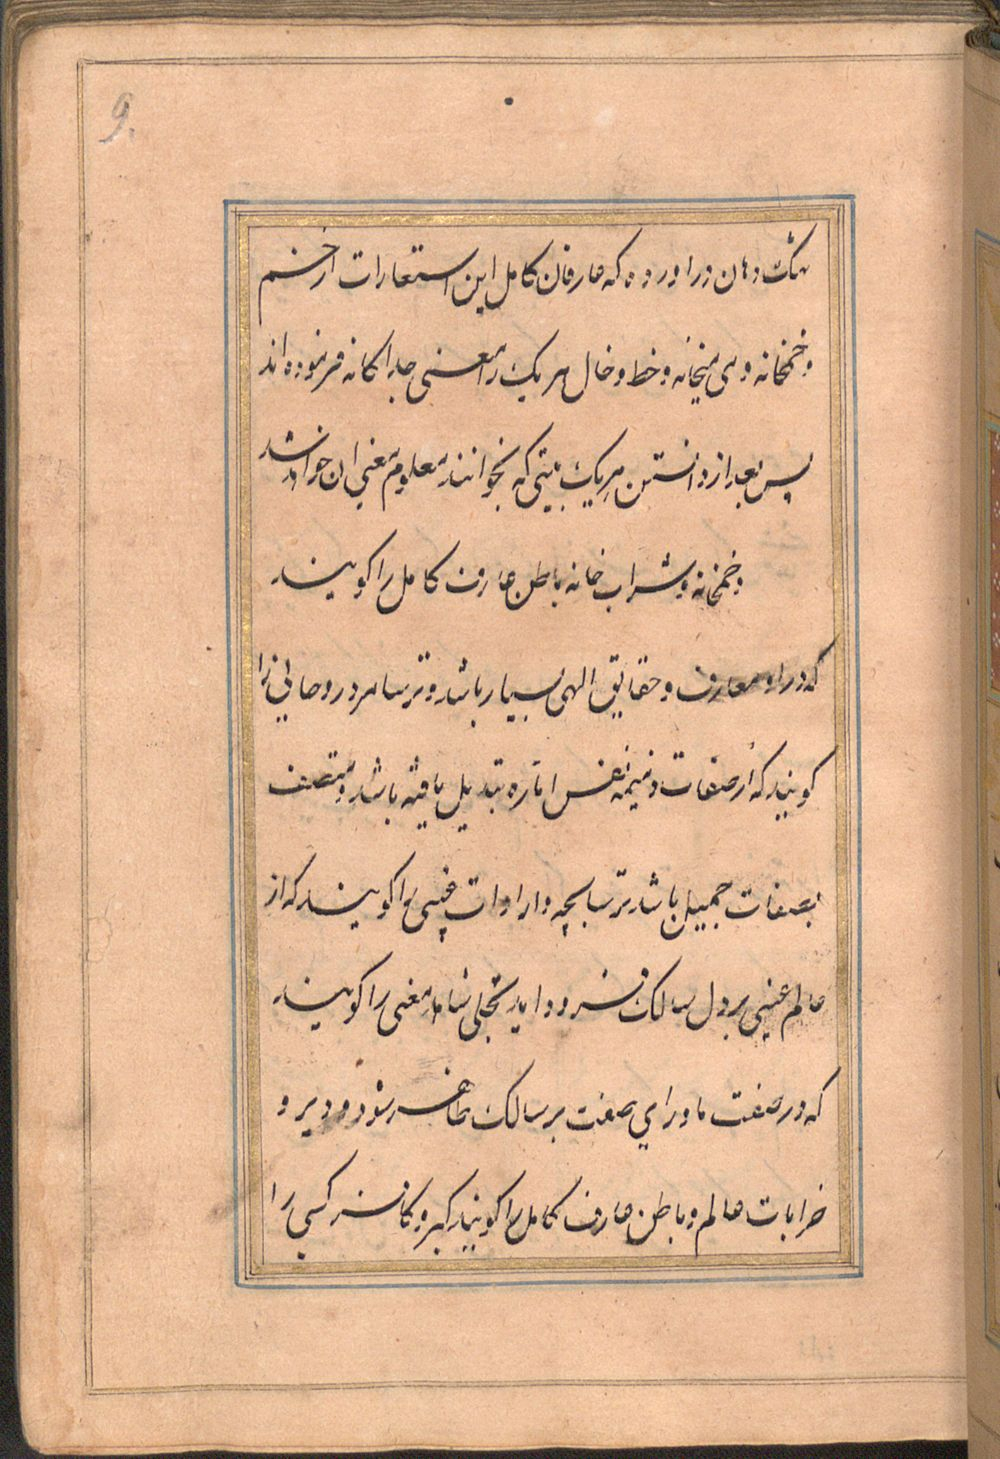 9.
تنک دهان در آورده که عارفان کامل این استعارات از خم
و خمخانه و می میخانه و خط و خال هر یک را معنی جداکانه فرموده اند
پس بعد از دانستن هر یک بیتی که بخوانند معلوم معنی ان خواهد شد
و خمخانه و شراب خانه باطن عارف کامل را کویند
که در او معارف و حقایق الهی بسیار باشد و ترسا مرد روحانی را
کویند که از صفات ذمیمه نفس اماره تبدیل یافته باشد و متصف
بصفات جمیل باشد ترسابچه واردات غیبی را کویند که از
عالم غیبی بر دل سالک فرود اید تجلی شاهد معنی را کویند
که در صفت ماورای صفت بر سالک ظاهر شود و دیر و
خرابات عالم و باطن عارف کامل را کویند کبر و کافر کسی را